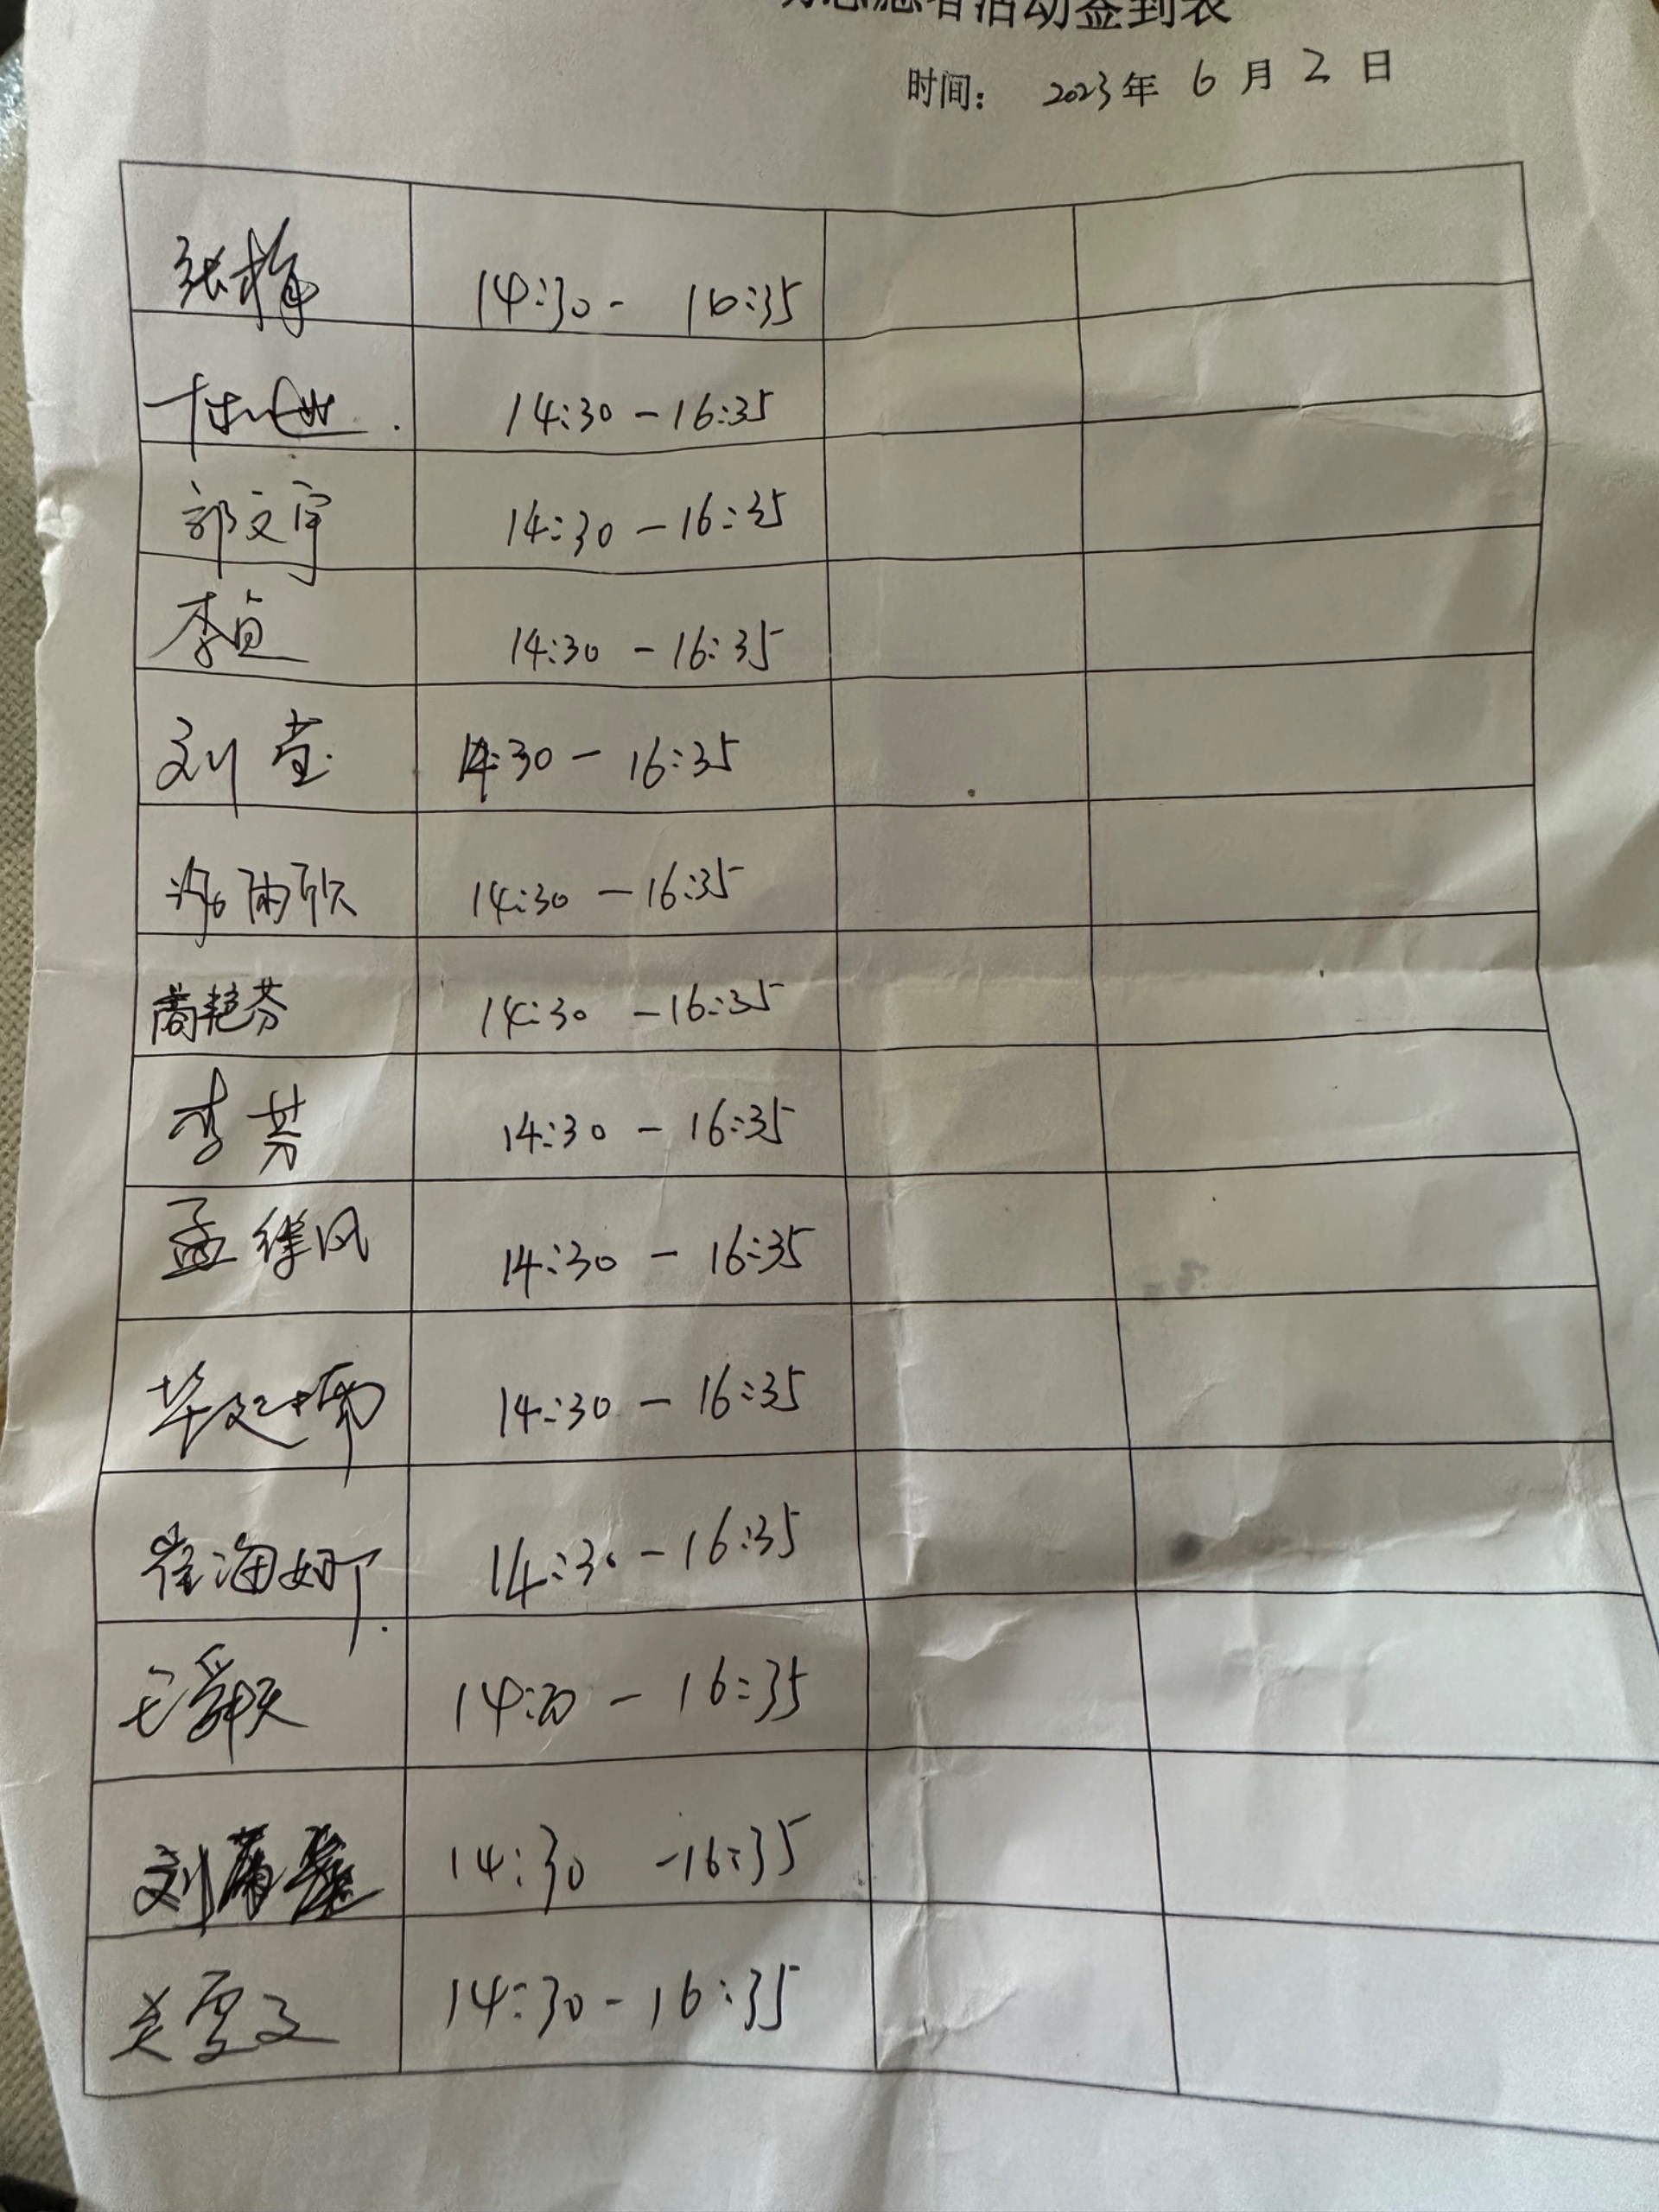 志愿者活动签到表
时间： 2023年 6 月 2 日
张梅 14:30 - 16:35
14:30 - 16:35
郭文宇 14:30 - 16:35
李贞 14:30 - 16:35
刘莹 14:30 - 16:35
雨欣 14:30 - 16:35
商艳芬 14:30 - 16:35
李芳 14:30 - 16:35
孟 风 14:30 - 16:35
14:30 - 16:35
崔海娜 14:30 - 16:35
14:30 - 16:35
刘 14:30 - 16:35
关雪文 14:30 - 16:35